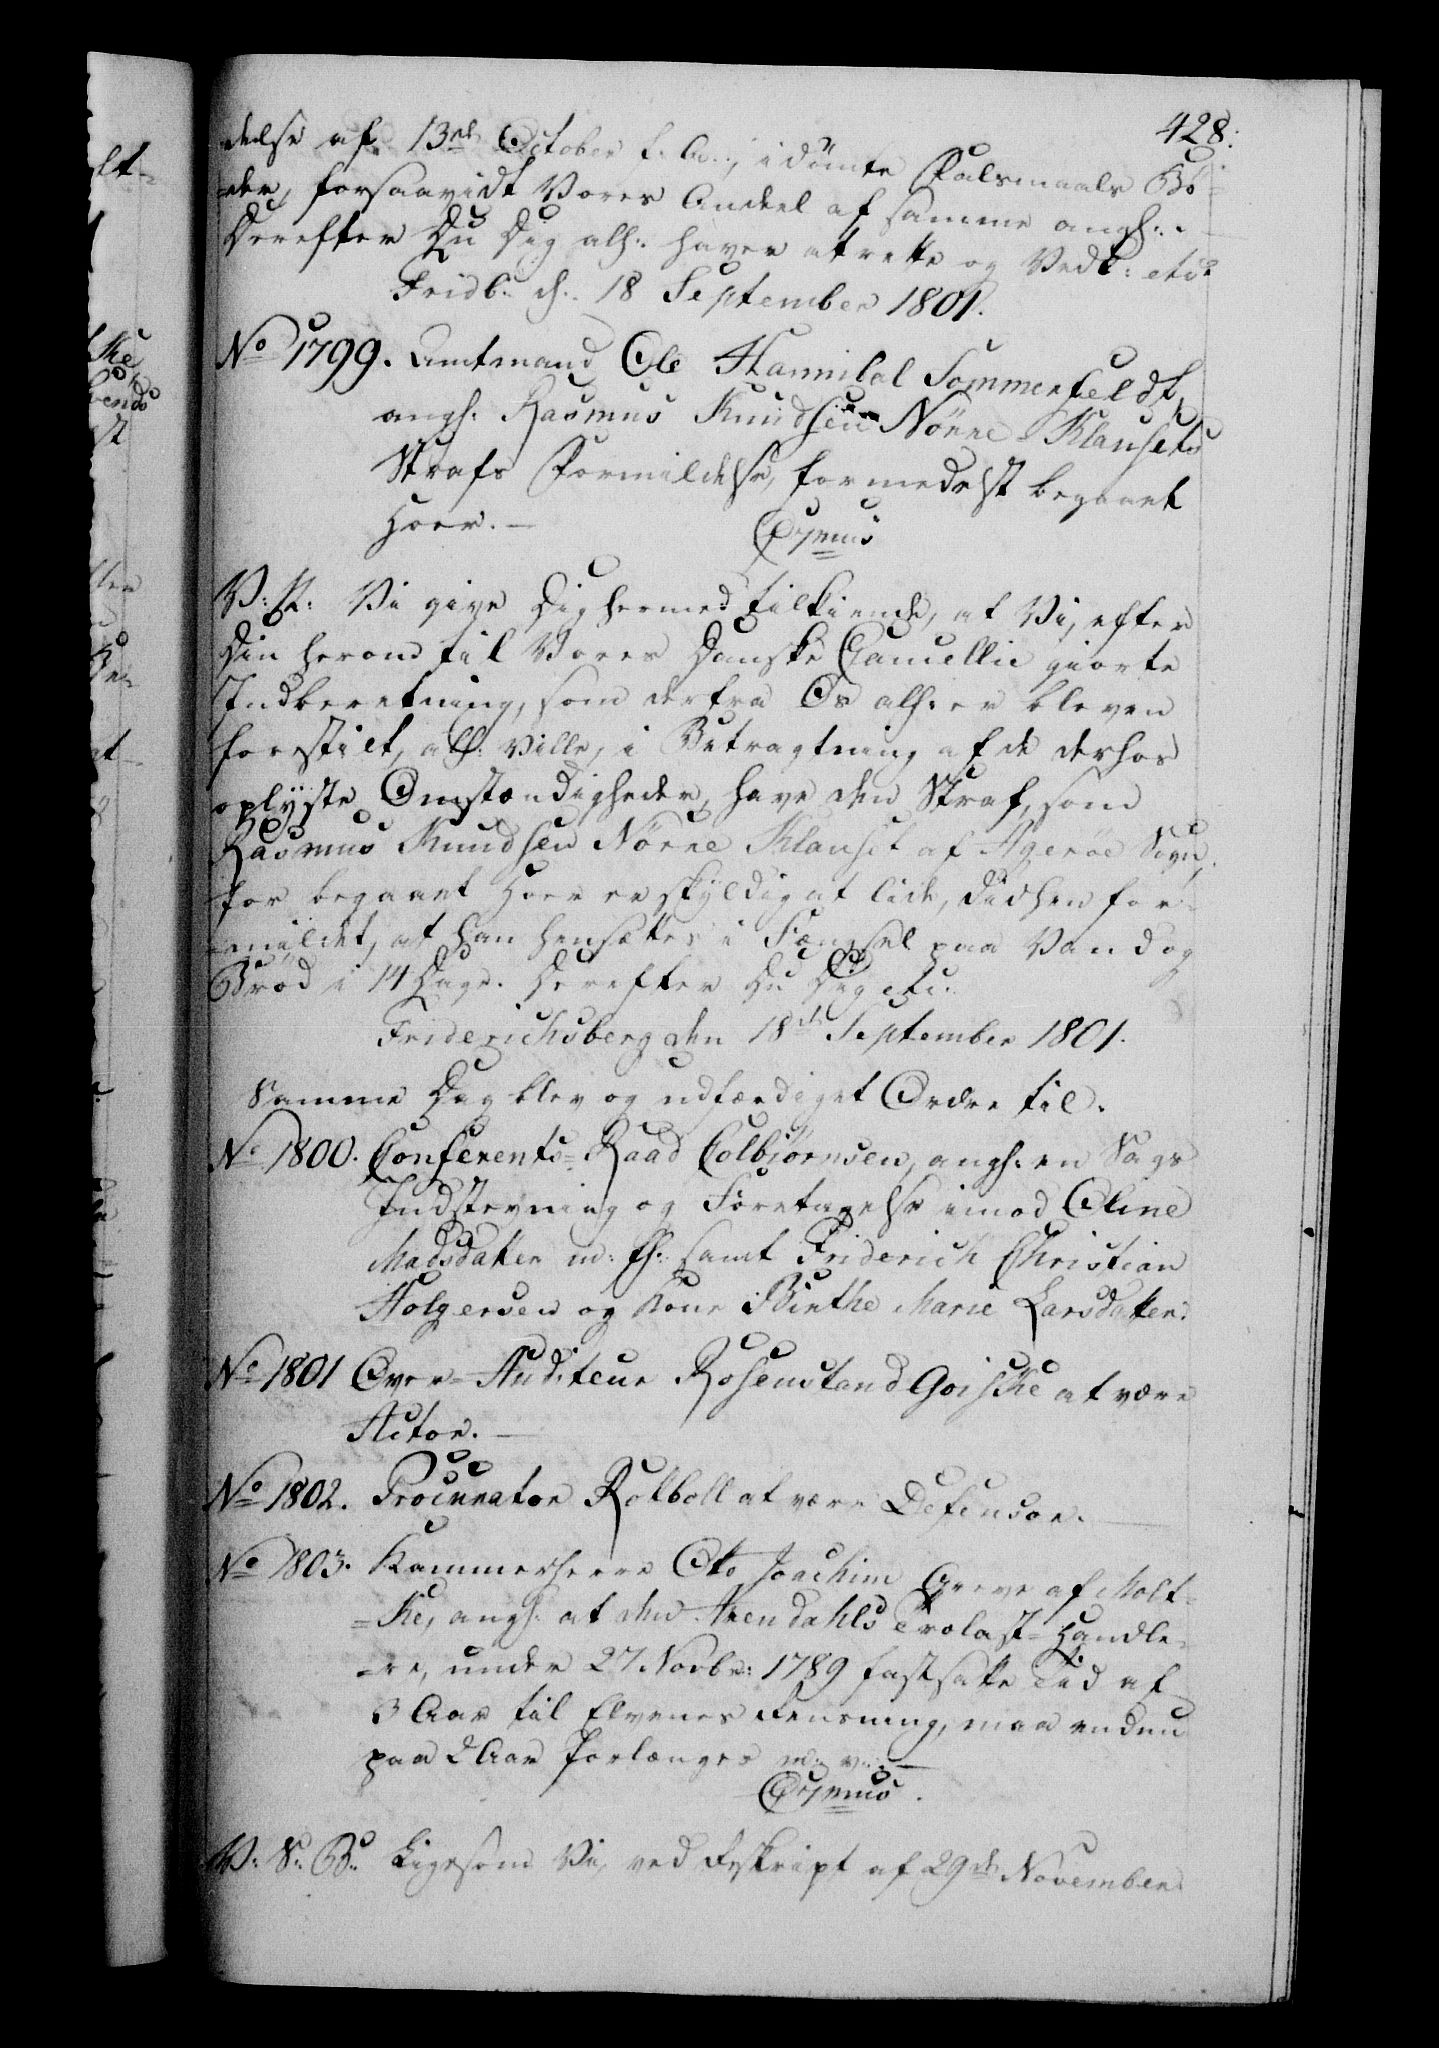 428.
delse af 13de October f: A:, idömte Falsmaals Bö-
-der, forsaavidt Vores Andeel af samme angh:.
Derefter Du Dig alh: haver at rette og Vedb: etc.
Fridb: d: 18 September 1801.
No 1799. Amtmand Ole Hannibal Sommerfeldt,
angh. Rasmus Knudsen Nörre Klausets
Strafs Formildelse, formedelst begaaet
Hoer. —
C7mus
V: K: Vi give Dig hermed tilkiende, at Vi, efter
Din herom til Vores Danske Cancellie giorte
Indberetning, som derfra Os alh: er bleven
forestilt, alh: ville, i Betragtning af de derhos
oplyste Omstændigheder, have den Straf, som
Rasmus Knudsen Nörre Klauset af Agerøe Sogn,
for begaaet Hoer er skyldig at lide, didhen for-
-mildet, at han hensættes i Fængsel paa Vand og
Bröd i 14 Dage. Derefter Du Dig etc.
Friderichsberg den 18de September 1801.
Samme Dag blev og udfærdiget Ordre til.
No 1800. Conferents-Raad Colbiørnsen, angh: en Sags
Indstevning og Foretagelse imod Oline
Madsdatter m: fl: samt Friderich Christian
Holgersen og Kone Birthe Marie Larsdatter.
No 1801 Over-Auditeur Rosenstand Goiske at være
Actor. —
No 1802. Procurator Rotboll at være Defensor. —
No 1803. Kammerherre Otto Joachim Greve af Molt-
-ke, angh. at den Arendahls Trælast-Handle-
-re, under 27 Novbr: 1789 fastsatte Tid af
3 Aar til Elvenes Rensning, maa endnu
paa 2 Aar forlænges m: v: —
C7mus.
V: S: B: Ligesom Vi, ved Reskript af 29de November